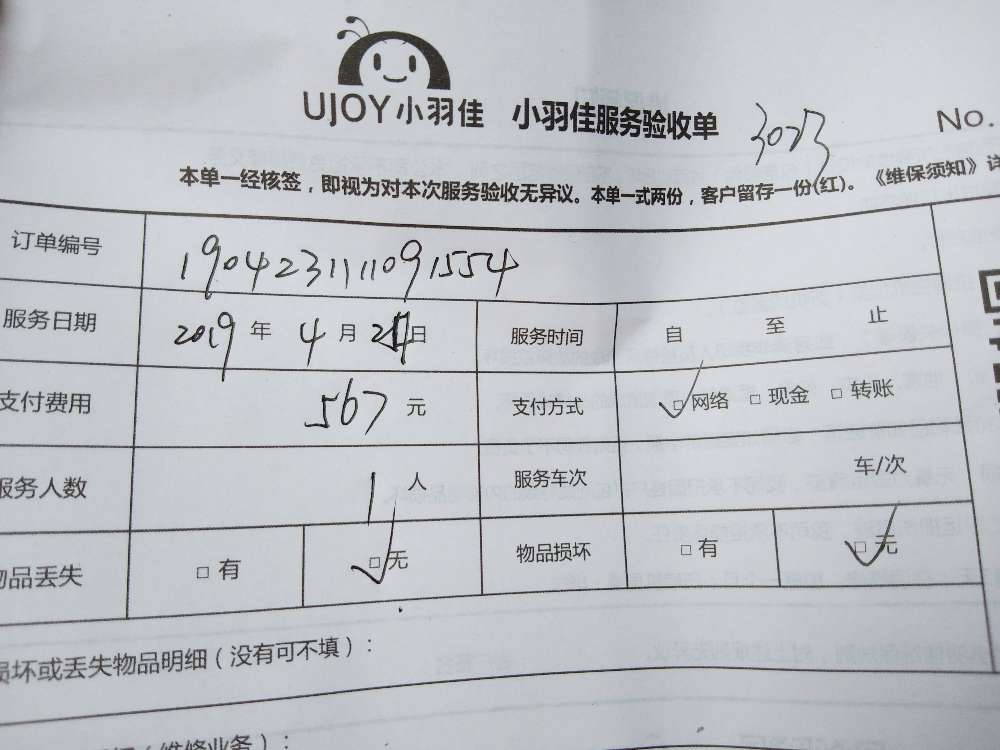 UJOY小羽佳 小羽佳服务验收单 3023 No.
本单一经核签，即视为对本次服务验收无异议。本单一式两份，客户留存一份(红)。《维保须知》详
订单编号 1904231111091554
服务日期 2019 年 4 月 日 服务时间 自 至 止
支付费用 567 元 支付方式 □网络 □现金 □转账
服务人数 1 人 服务车次 车/次
物品丢失 □有 □无 物品损坏 □有 □无
损坏或丢失物品明细（没有可不填）：
（维修业务）：